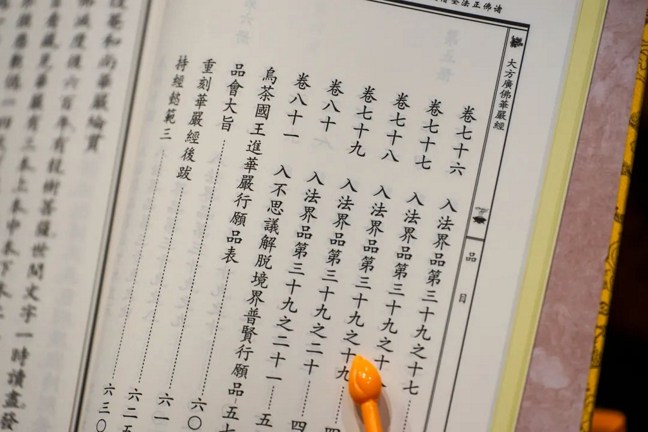 諸佛正法
大方廣佛華嚴經
品目
卷七十六 入法界品第三十九之十七
卷七十七 入法界品第三十九之十
卷七十八 入法界品第三十九之十九
卷七十九 入法界品第三十九之二十 四
卷八十 入法界品第三十九之二十一 五
卷八十一 入不思議解脫境界普賢行願品 五七
烏茶國王進華嚴行願品表 六〇
品會大旨 六一
重刻華嚴經後跋 六二五
持經懿範三 六三〇
菴和尚華嚴綸貫
佛滅度後六百年有龍樹菩薩世間文字一時讀盡發
華嚴有三本上本中本下本